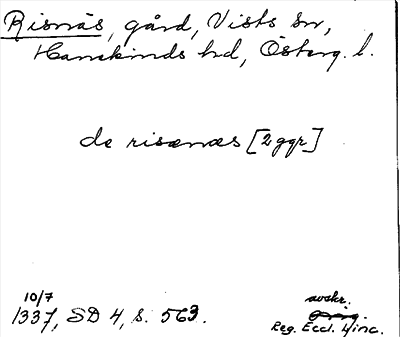 Risnäs, gård, Vists sn,
Hanekinds hd, Österg. l.
de risænæs [2 ggr]
10/7
1337, SD 4, s. 563.
avskr.
Reg. Eccl. Linc.